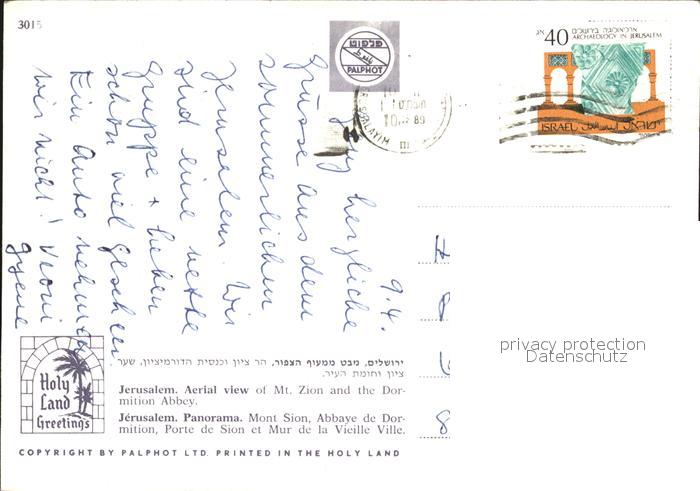 3015
פלפוט
PALPHOT
40 אג
ארכאולוגיה בירושלים
ARCHAEOLOGY IN JERUSALEM
ISRAEL اسرائيل ישראל
YERUSHALAYIM
89
9.4.
Ganz herzliche
Grüsse aus dem
sommerlichen
Jerusalem. Wir
sind eine nette
Gruppe + haben
schon viel gesehen
Ein Auto nehmen
wir nicht! Vroni
privacy protection
Datenschutz
Holy
Land
Greetings
ירושלים, מבט ממעוף הצפור, הר ציון וכנסית הדורמיציון, שער
ציון וחומת העיר.
Jerusalem. Aerial view of Mt. Zion and the Dor-
mition Abbey.
Jérusalem. Panorama. Mont Sion, Abbaye de Dor-
mition, Porte de Sion et Mur de la Vieille Ville.
COPYRIGHT BY PALPHOT LTD. PRINTED IN THE HOLY LAND
8